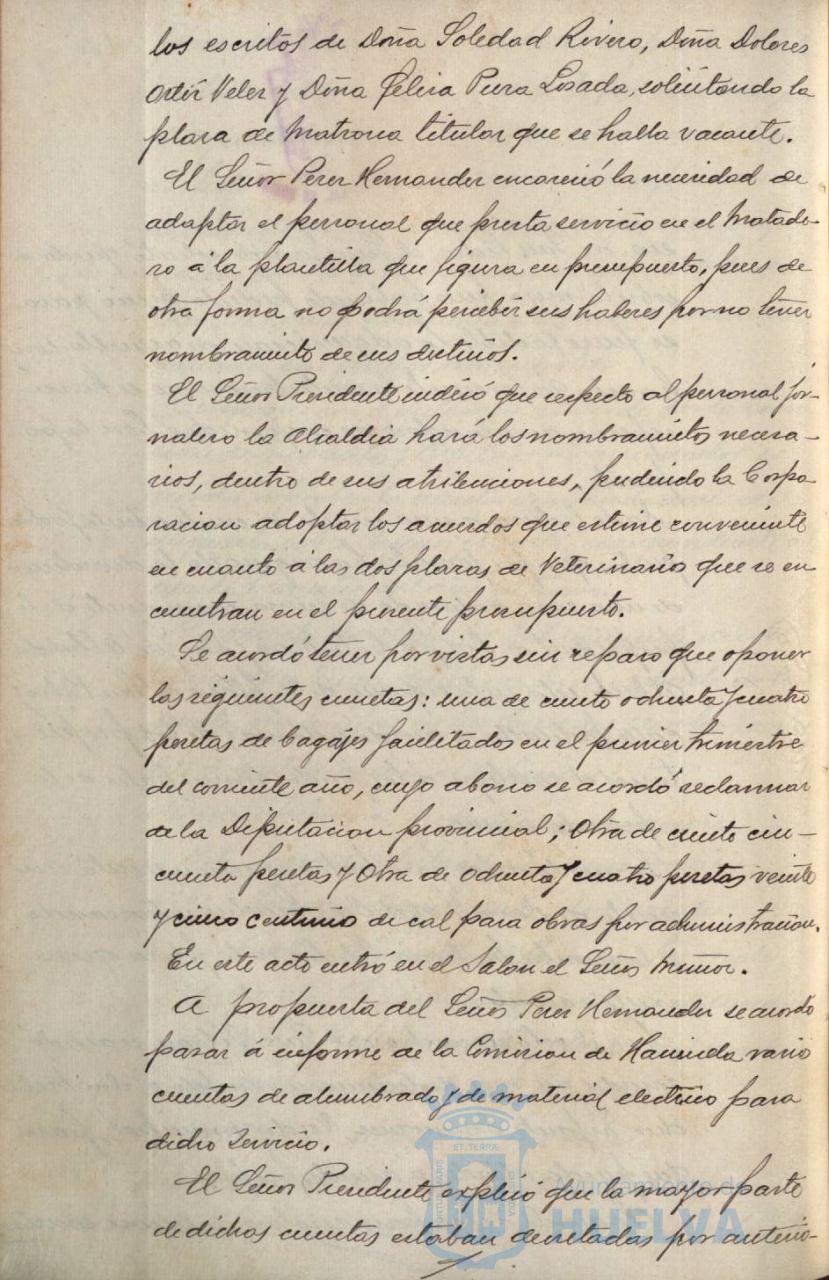 los escritos de Doña Soledad Rivero, Doña Dolores
Ortíz Velez y Doña Felisa Pura Losada, solicitando la
plaza de Matrona titular que se halla vacante.
El Señor Perez Hernandez encareció la necesidad de
adaptar el personal que presta servicio en el Matade-
ro á la plantilla que figura en presupuesto, pues de
otra forma no podrá percibir sus haberes por no tener
nombramiento de sus destinos.
El Señor Presidente indicó que respecto al personal jor-
nalero la Alcaldia hará los nombramientos necesa-
rios, dentro de sus atribuciones, pudiendo la Corpo-
racion adoptar los acuerdos que estime conveniente
en cuanto á las dos plazas de Veterinario que se en
cuentran en el presente presupuesto.
Se acordó tener por vistas sin reparo que oponer
las siguientes cuentas: una de ciento ochenta y cuatro
pesetas de bagajes facilitados en el primer trimestre
del corriente año, cuyo abono se acordó reclamar
de la Diputacion provincial; otra de ciento cin-
cuenta pesetas y otra de ochenta y cuatro pesetas veinte
y cinco centimo de cal para obras por administracion.
En este acto entró en el Salon el Señor Muñoz.
A propuesta del Señor Perez Hernandez se acordó
pasar á informe de la Comision de Hacienda vario
cuentas de alumbrado y de material electrico para
dicho servicio.
El Señor Presidente explicó que la mayor parte
de dichas cuentas estaban decretadas por anterio-
ET TERRÆ
Ayuntamiento de
HUELVA